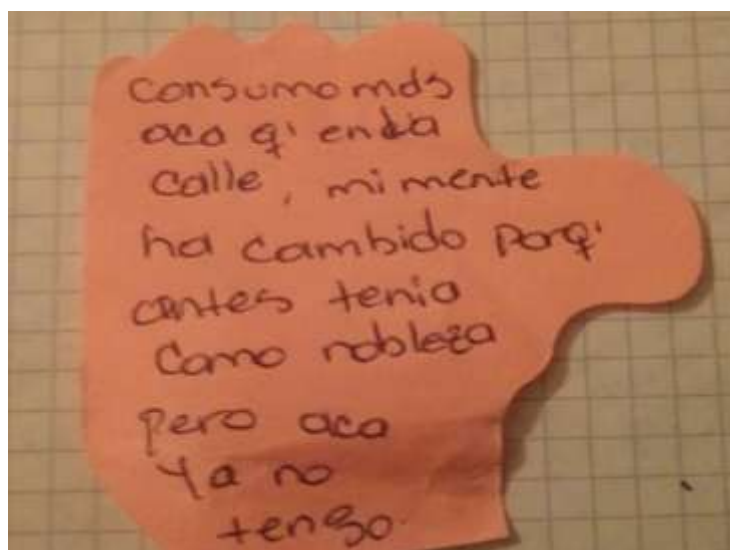 consumo mas
aca q' en la
calle, mi mente
ha cambido porq'
antes tenia
como nobleza
pero aca
ya no
tengo.